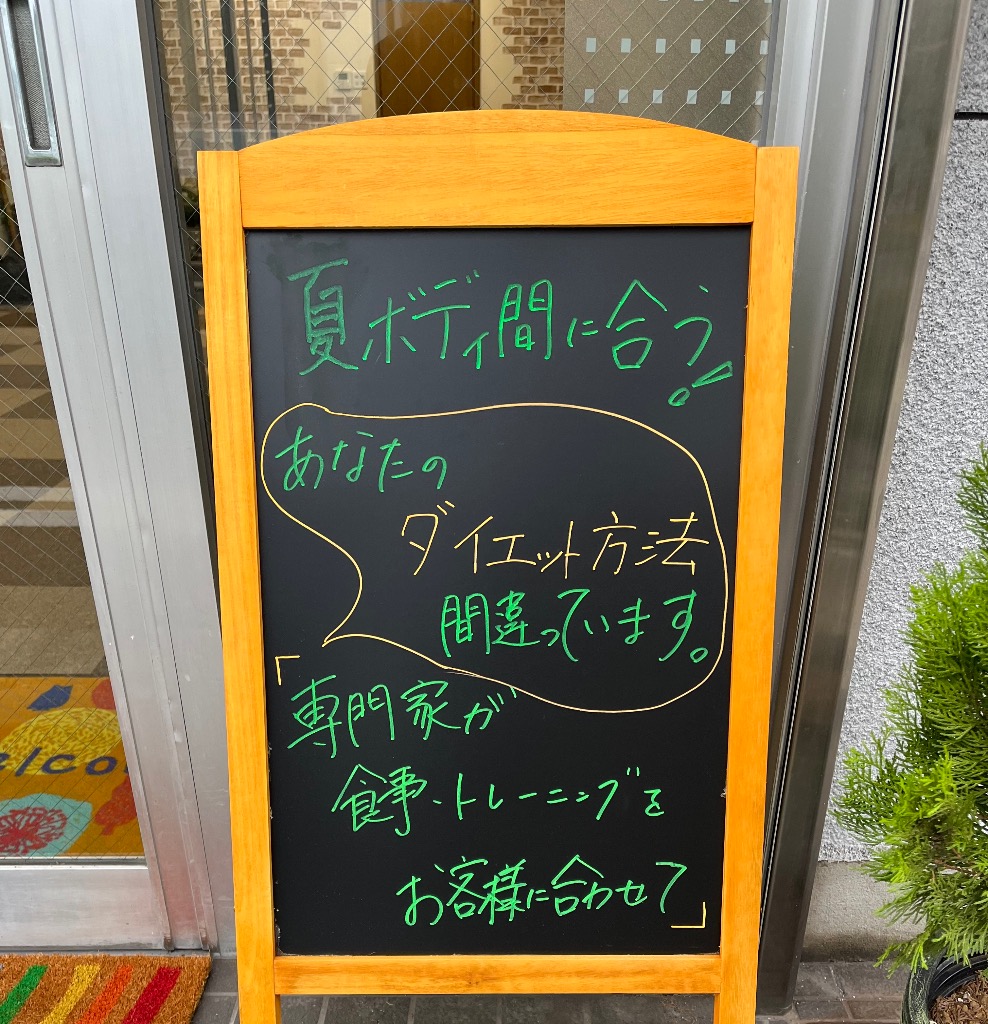 夏ボディ間に合う!
あなたの
ダイエット方法
間違っています。
「専門家が
食事・トレーニングを
お客様に合わせて」
elco